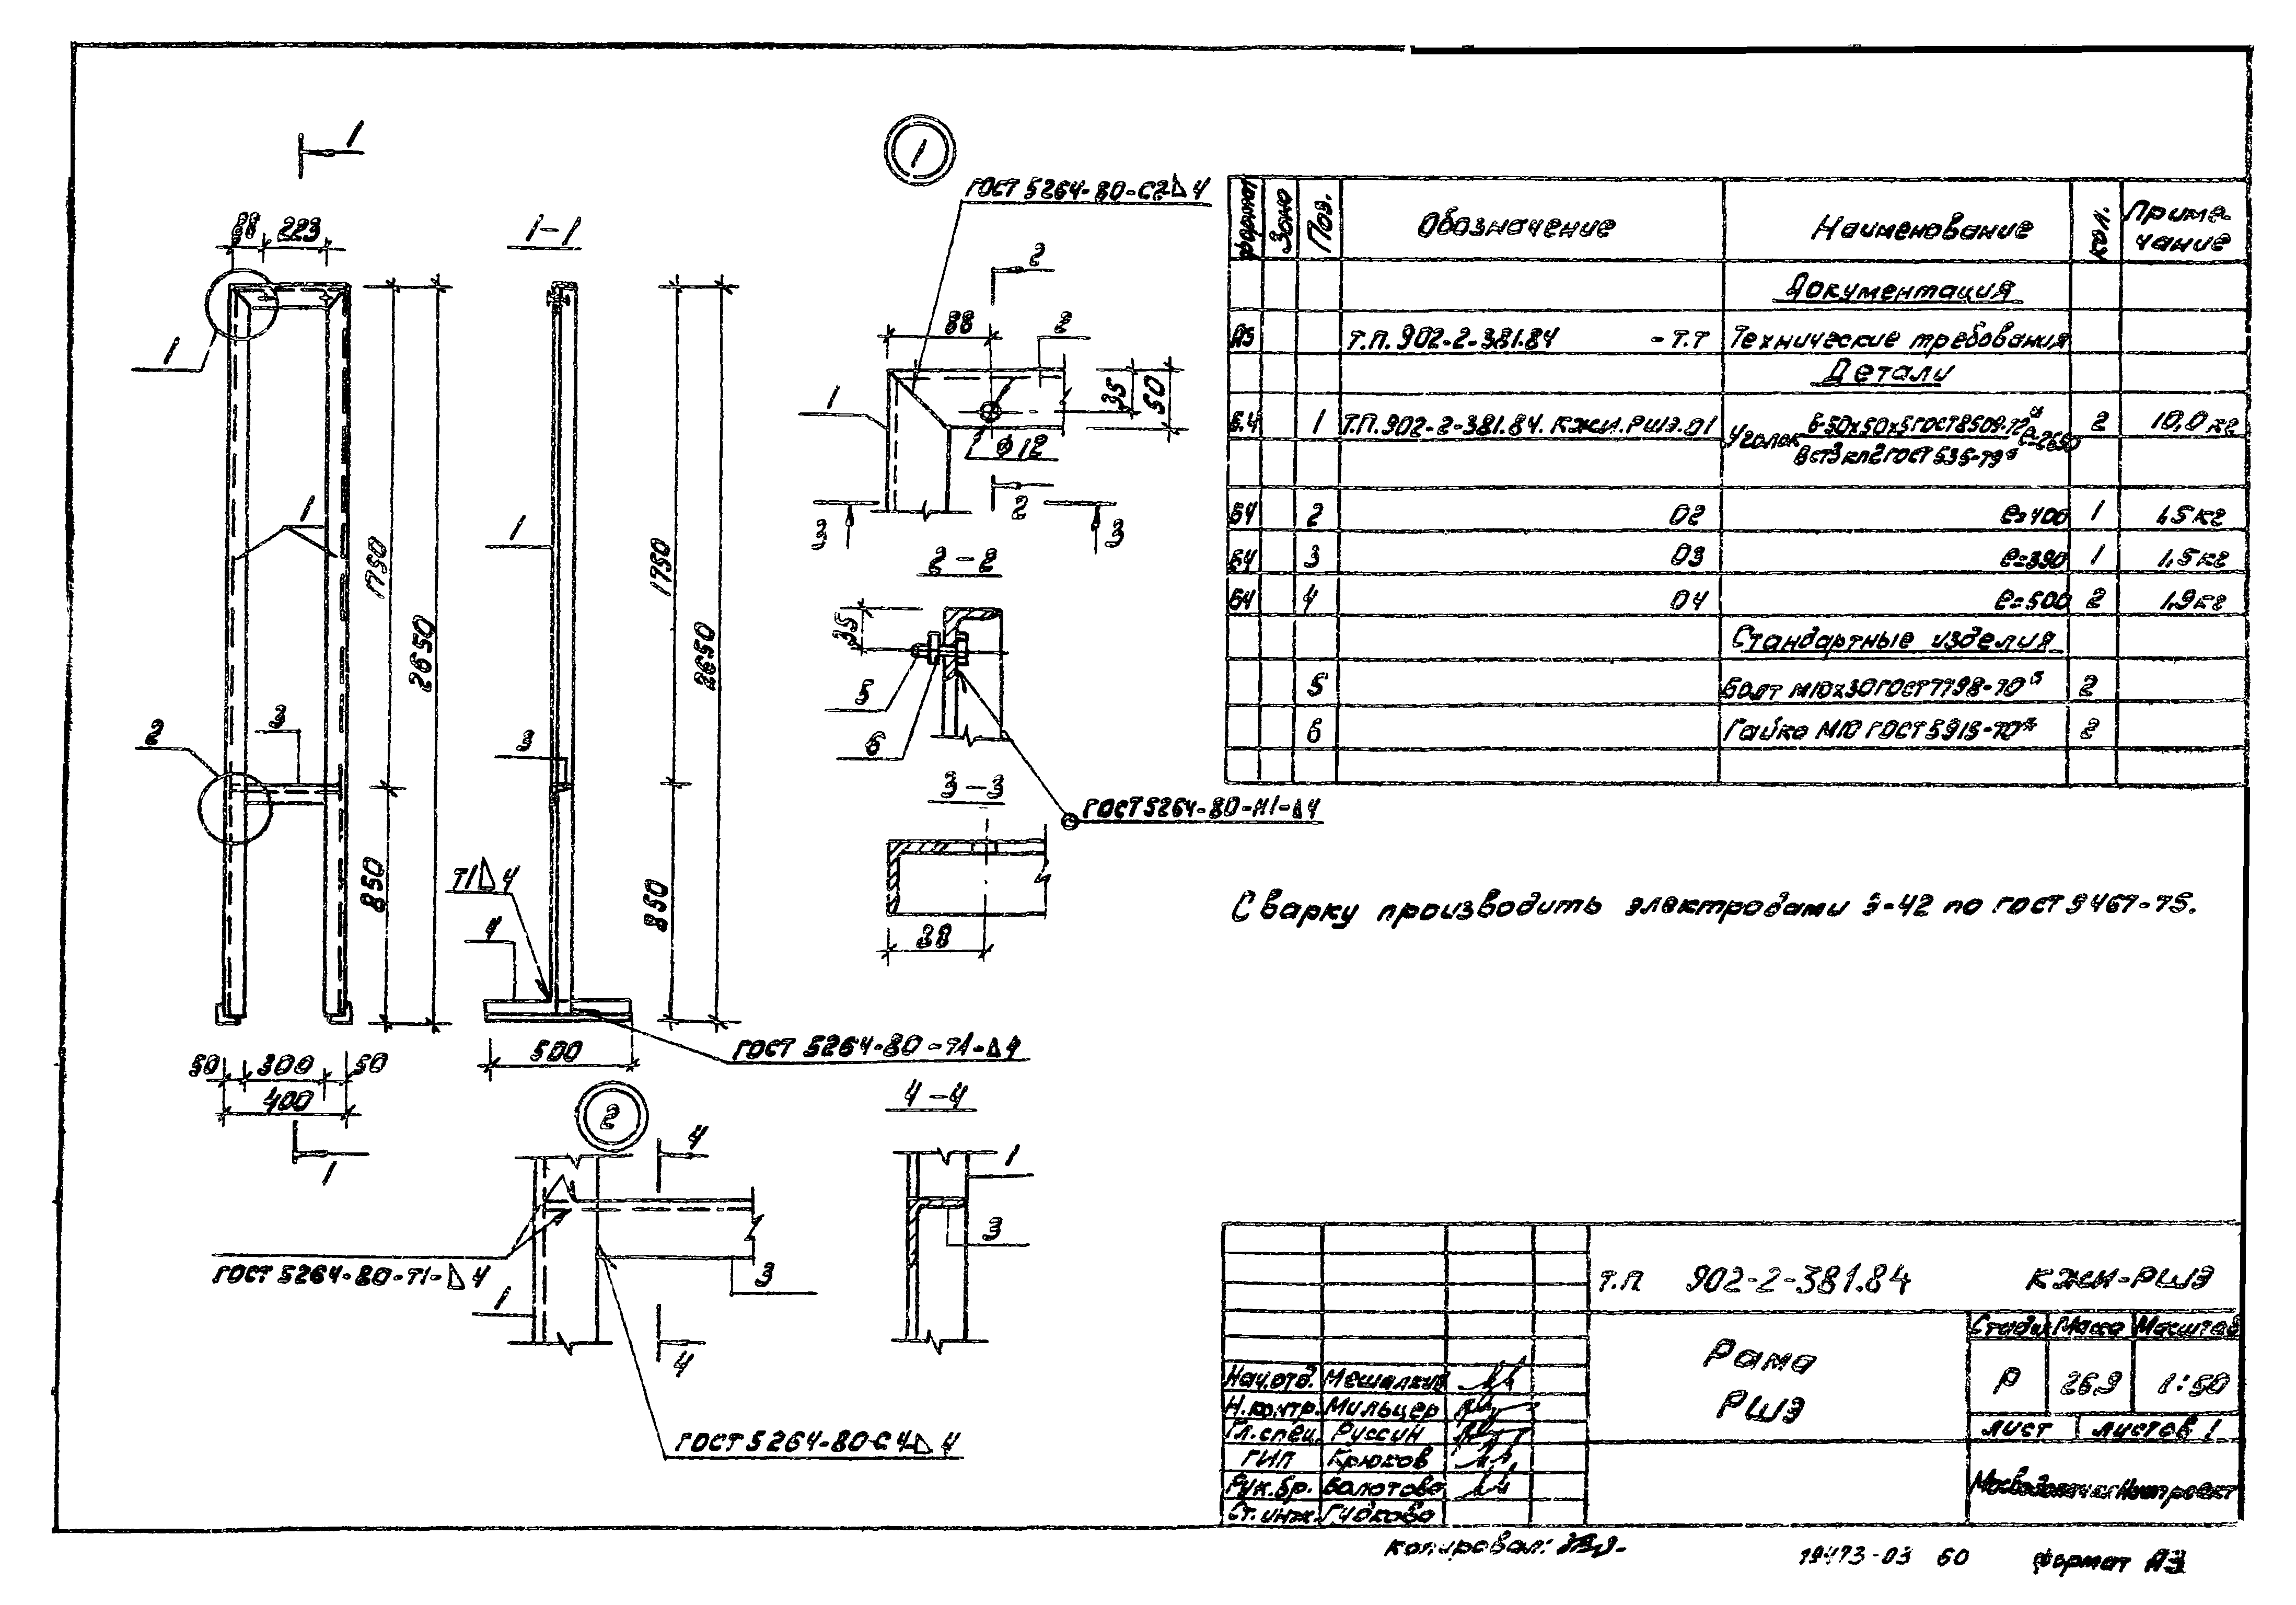 1
88 223
1-1
1
1750
2650
3
2
850
50 300 50
400
1
1
1750
2650
3
850
Т1 △ 4
4
500
ГОСТ 5264-80-Т1-△4
1
ГОСТ 5264-80-С2△4
2
88
2
35
50
1
Ф12
2
3
3
2-2
35
5
6
3-3
ГОСТ 5264-80-Н1-△4
88
2
4
ГОСТ 5264-80-Т1-△4
1
3
4
ГОСТ 5264-80-С4-△4
4-4
1
3
Формат Зона Поз. Обозначение Наименование Кол. Приме-
чание
Документация
А3 Т.П. 902-2-381.84 -Т.Т Технические требования
Детали
Б.4 1 Т.П. 902-2-381.84. КЖИ.РШЭ.01 Уголок Б-50х50х5 ГОСТ 8509-72* ℓ=2650 2 10,0 кг
ВСт3кп2 ГОСТ 535-79*
Б4 2 02 ℓ=400 1 1,5 кг
Б4 3 03 ℓ=390 1 1,5 кг
Б4 4 04 ℓ=500 2 1,9 кг
Стандартные изделия
5 Болт М10х30 ГОСТ 7798-70* 2
6 Гайка М10 ГОСТ 5915-70* 2
Сварку производить электродами Э-42 по ГОСТ 9467-75.
Т.П 902-2-381.84 КЖИ-РШЭ
Рама
РШЭ
Стадия Масса Масштаб
Р 26,9 1:50
Лист Листов 1
Нач.отд. Мешалкин
Н.контр. Мильцер
Гл.спец. Руссин
ГИП Крюков
Рук.бр. Болотова
Ст.инж. Гудкова
Мосводоканалниипроект
Копировал:
19473-03 60
Формат А3